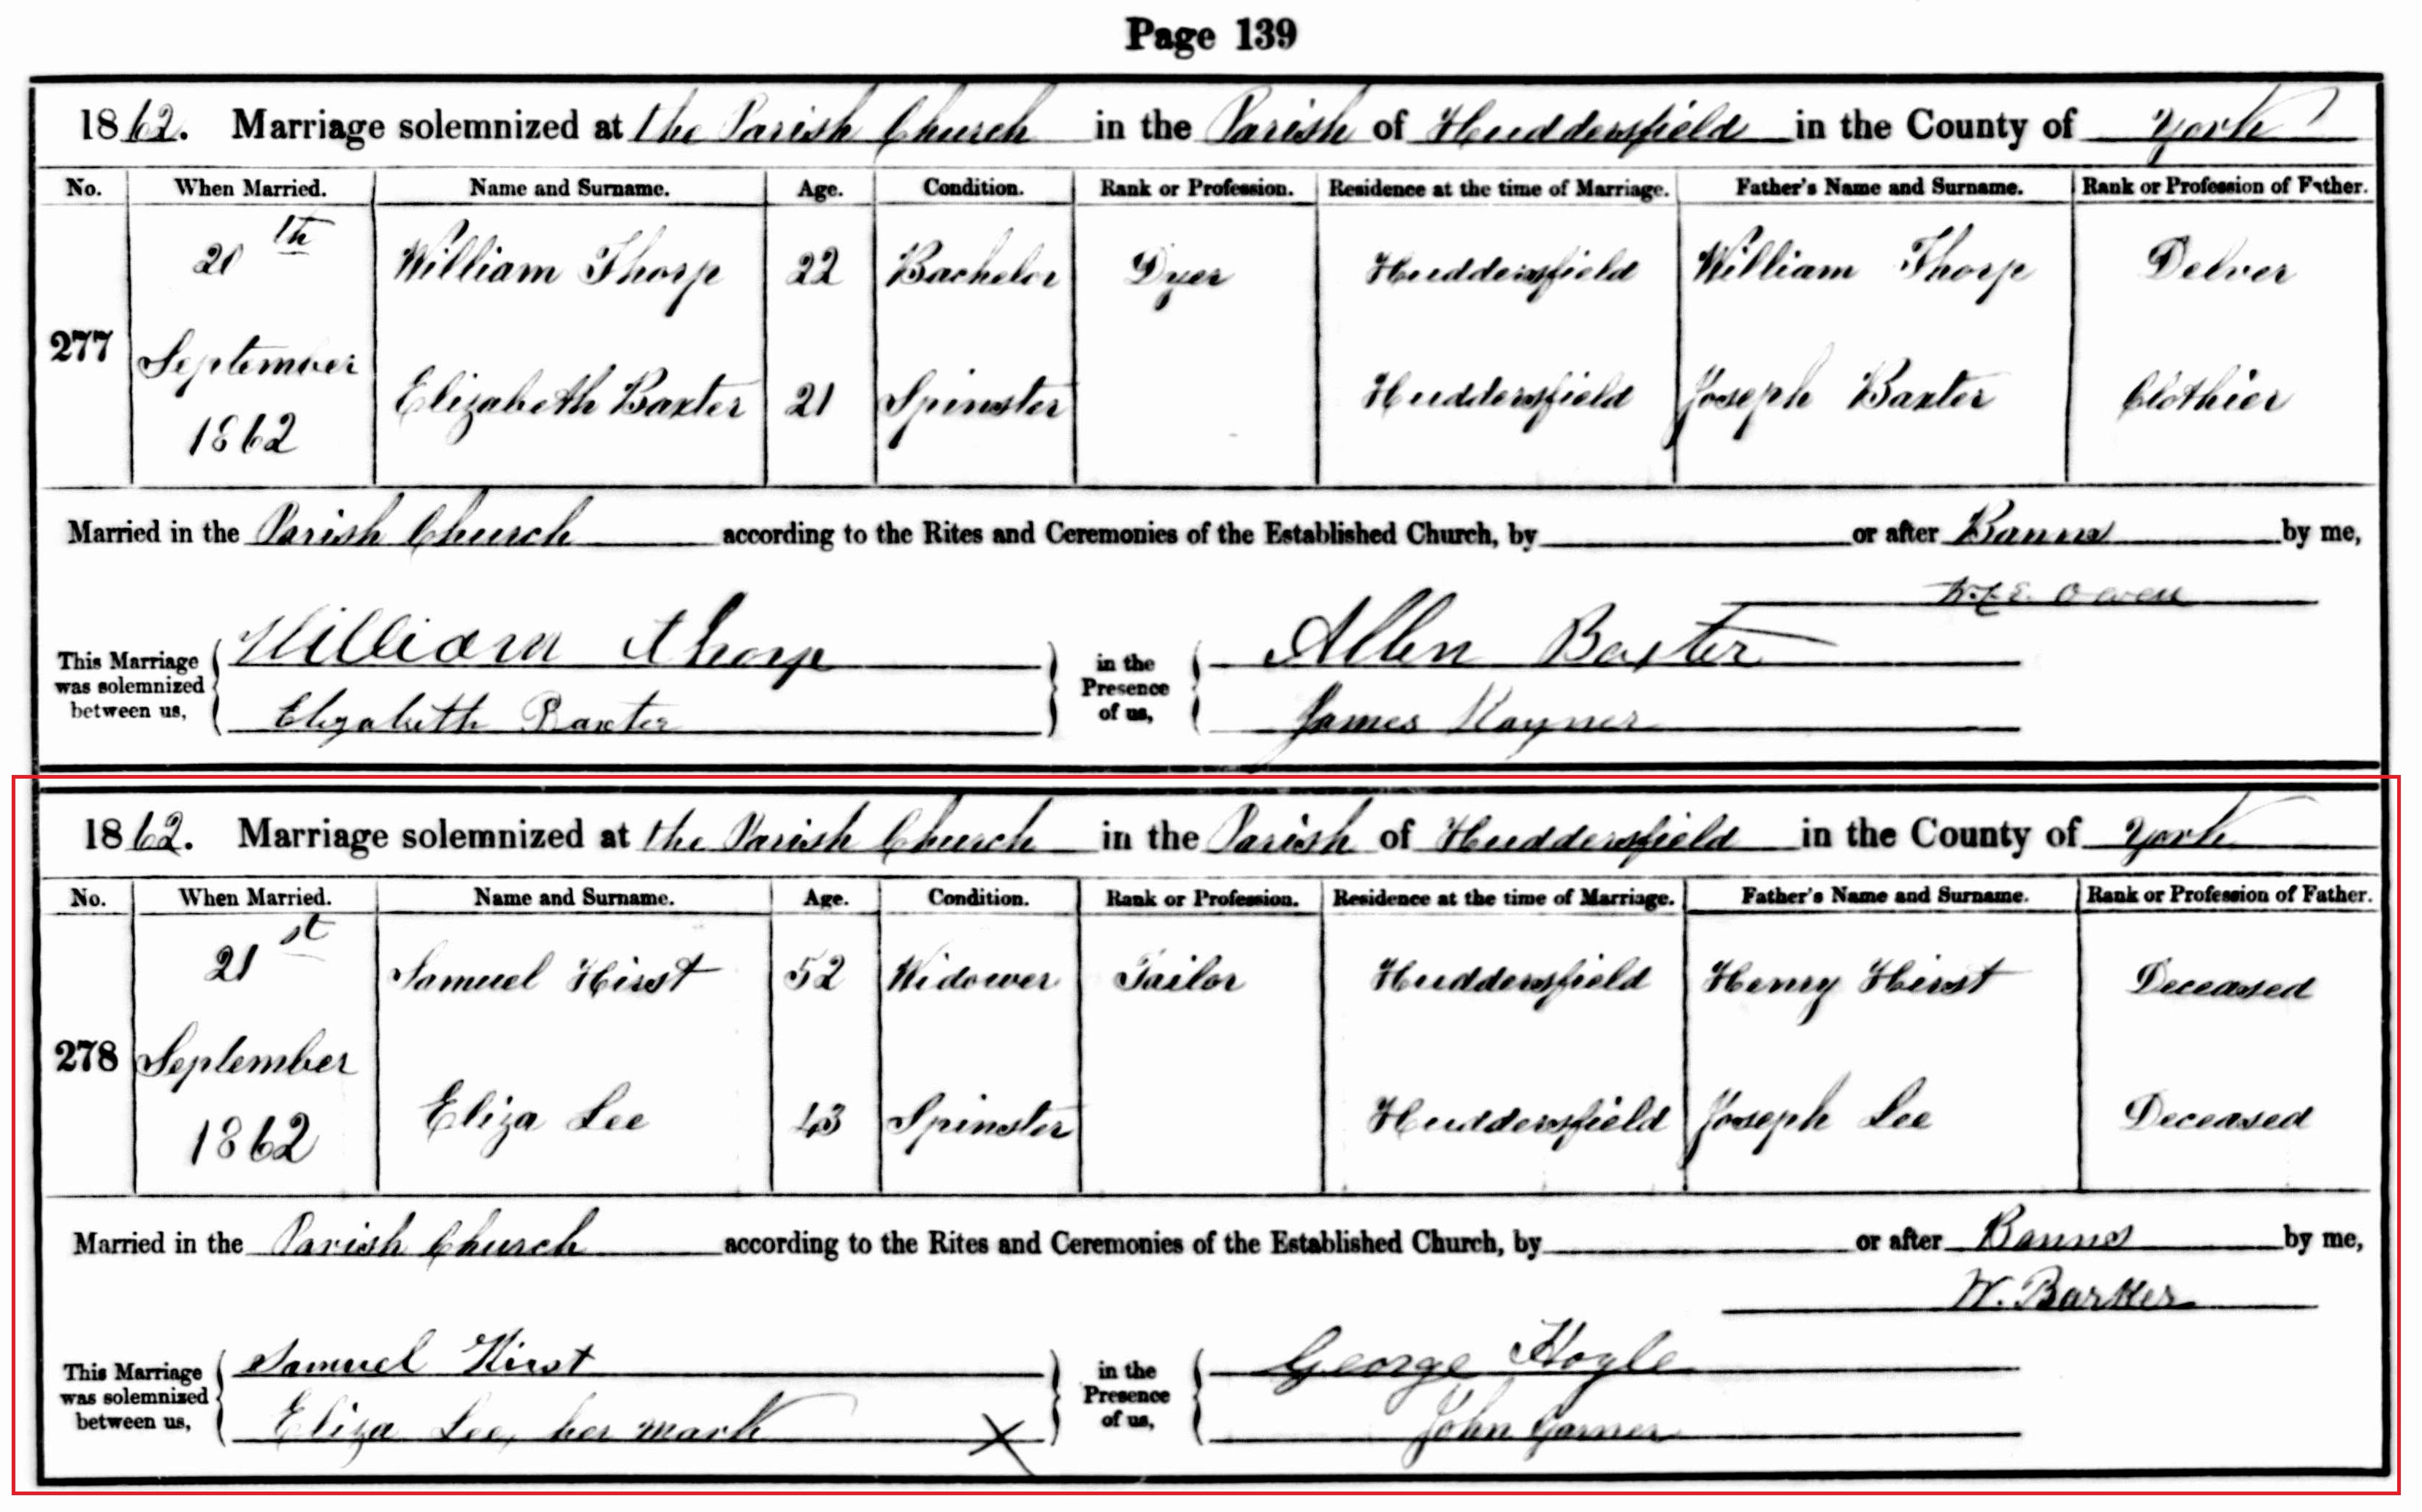 Page 139
1862. Marriage solemnized at the Parish Church in the Parish of Huddersfield in the County of York
No. When Married. Name and Surname. Age. Condition. Rank or Profession. Residence at the time of Marriage. Father's Name and Surname. Rank or Profession of Father.
20th William Thorp 22 Bachelor Dyer Huddersfield William Thorp Delver
277 September
Elizabeth Baxter 21 Spinster Huddersfield Joseph Baxter Clothier
1862
Married in the Parish Church according to the Rites and Ceremonies of the Established Church, by or after Banns by me,
Owen
William Thorp Allen Baxter
This Marriage was solemnized between us, in the Presence of us,
Elizabeth Baxter James Rayner
1862. Marriage solemnized at the Parish Church in the Parish of Huddersfield in the County of York
No. When Married. Name and Surname. Age. Condition. Rank or Profession. Residence at the time of Marriage. Father's Name and Surname. Rank or Profession of Father.
21st Samuel Hirst 52 Widower Tailor Huddersfield Henry Hirst Deceased
278 September
1862 Eliza Lee 43 Spinster Huddersfield Joseph Lee Deceased
Married in the Parish Church according to the Rites and Ceremonies of the Established Church, by or after Banns by me,
W. Barker
Samuel Hirst George Hoyle
This Marriage was solemnized between us, in the Presence of us,
Eliza Lee, her mark X John Garner